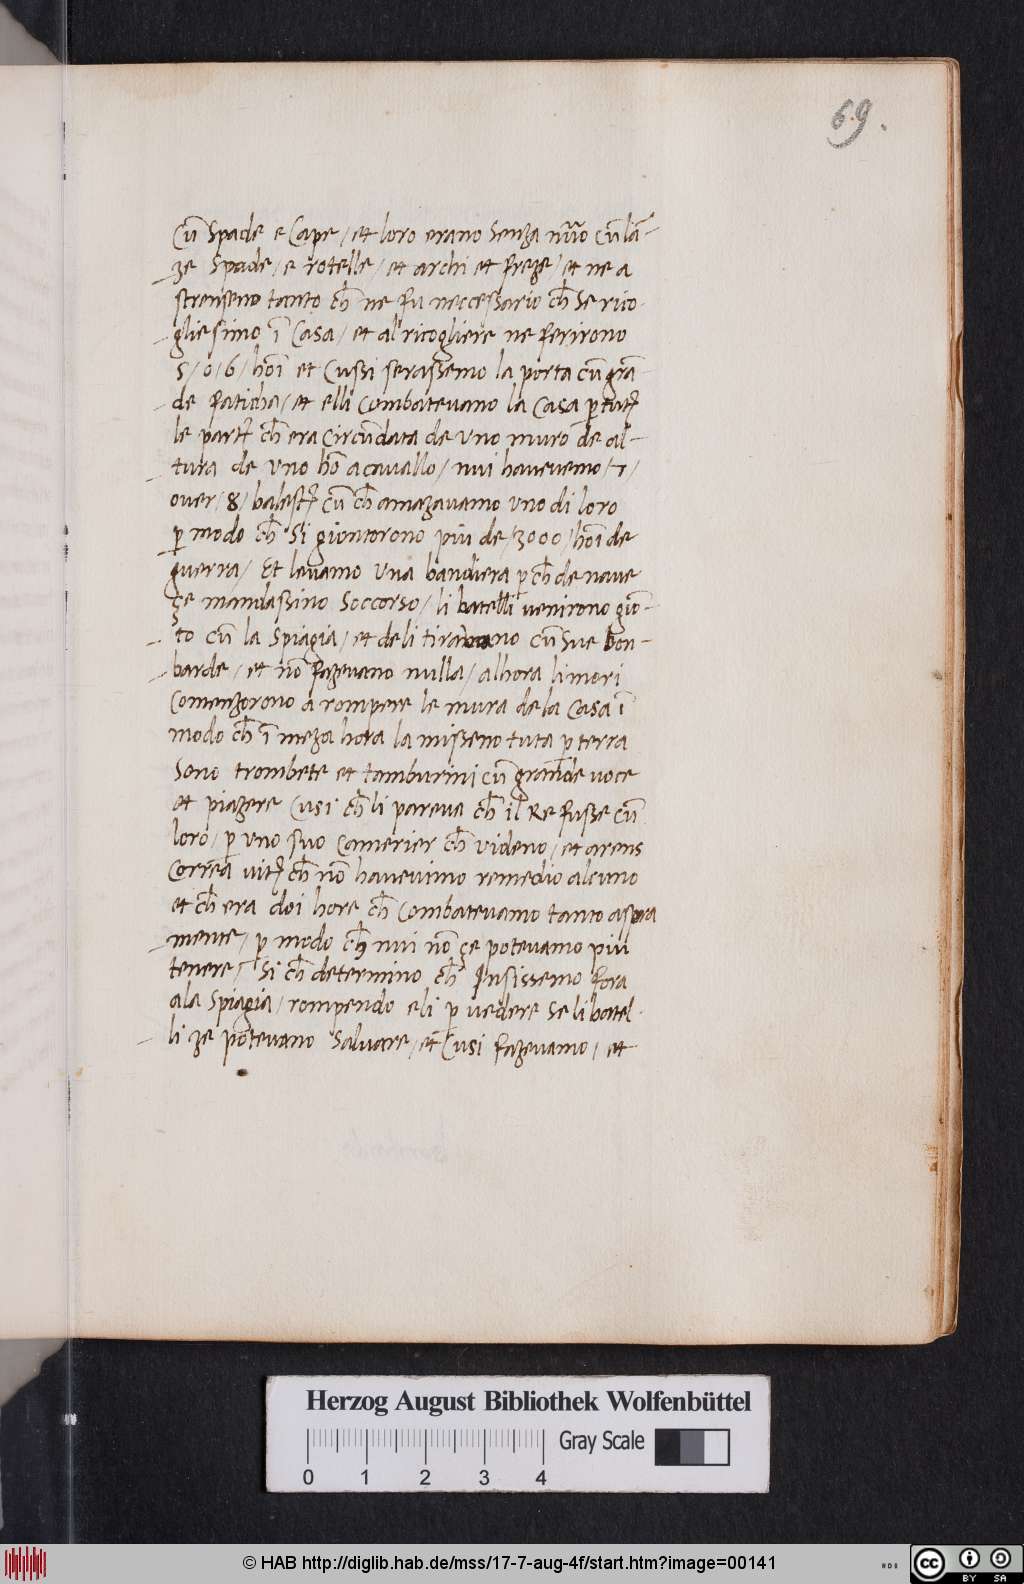 69.
Cū Spade e Cape / et loro erano Senza nūo cū lā-
ze Spade / e rotelle / et archi et freze / et ne a
strenseno tanto ch̄ ne fu neccessario ch̄ Se rico-
gliesimo ī Casa / et al ricogliere ne ferirono
5 / o / 6 / hoī et Cussi serassemo la porta cū grā-
de faticha / et elli Combatevano la Casa ꝑ tutt
le partt ch̄ era Circūdata de Uno muro de al-
tura de Uno hō a cavallo / nui havevemo / 7 /
over / 8 / balestt cū ch̄ amazavamo Uno di loro
ꝑ modo ch̄ Si giontorono piu de / 3000 / hoī de
guerra / Et levamo Una bandiera ꝑ ch̄ de nave
çe mandassino Soccorso / li batelli venirono giō-
to cū la Spiagia / et de li tiravano cū Sue bon-
barde / et nō fazevano nulla / alhora li mori
Comenzorono a rompere le mura de la Casa ī
modo ch̄ ī meza hora la misseno tuta ꝑ terra
Sono trombete et tamburini cū grande voce
et piazere Cusi ch̄ li pareva ch̄ il Re fusse cū
loro / ꝑ uno suo Camerier ch̄ videno / et arens
Correa vitt ch̄ nō havevimo remedio alcuno
et ch̄ era doi hore ch̄ Combatevamo tanto aspra
mente / ꝑ modo ch̄ nui nō çe potevamo piu
tenere / Si ch̄ determino ch̄ Insissemo fora
ala Spiagia / rompendo eli ꝑ vedere Se li batel-
li ze potevano Salvare / et Cusi fazevamo / et
Herzog August Bibliothek Wolfenbüttel
Gray Scale
0 1 2 3 4
© HAB http://diglib.hab.de/mss/17-7-aug-4f/start.htm?image=00141
cc BY SA